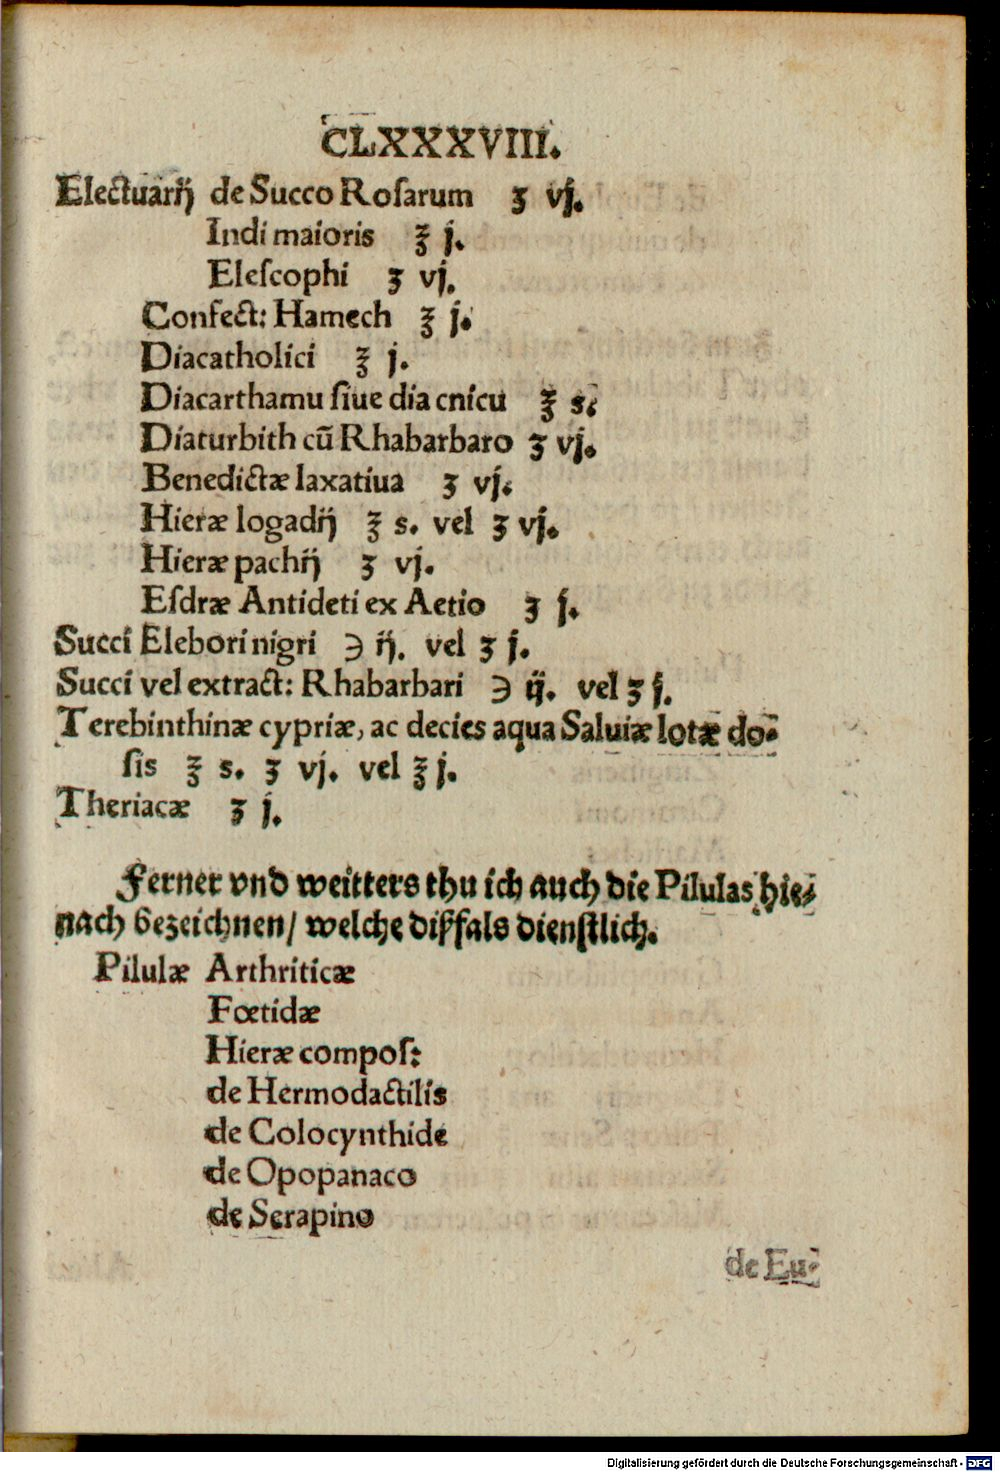 CLXXXVIII.
Electuarĳ de Succo Roſarum ʒ vj.
Indi maioris ℥ j.
Eleſcophi ʒ vj.
Confect: Hamech ℥ j.
Diacatholici ℥ j.
Diacarthamu ſiue dia cnicu ℥ s.
Diaturbith cū Rhabarbaro ʒ vj.
Benedictæ laxatiua ʒ vj.
Hieræ logadĳ ℥ s. vel ʒ vj.
Hieræ pachĳ ʒ vj.
Eſdræ Antideti ex Aetio ʒ j.
Succi Elebori nigri ℈ ĳ. vel ʒ j.
Succi vel extract: Rhabarbari ℈ ĳ. vel ʒ j.
Terebinthinæ cypriæ, ac decies aqua Saluiæ lotæ do-
ſis ℥ s. ʒ vj. vel ℥ j.
Theriacæ ʒ j.
Ferner vnd weitters thu ich auch die Pilulas hie-
nach bezeichnen/ welche dißfals dienſtlich.
Pilulæ Arthriticæ
Fœtidæ
Hieræ compoſ:
de Hermodactilis
de Colocynthide
de Opopanaco
de Serapino
de Eu-
Digitalisierung gefördert durch die Deutsche Forschungsgemeinschaft - DFG